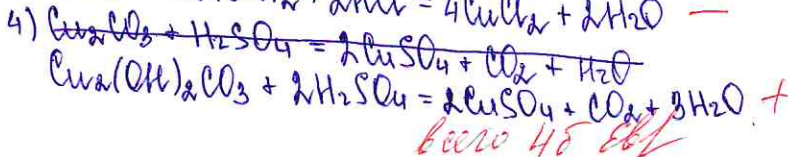 = 4CuCl₂ + 2H₂O —
4) Cu₂CO₃ + H₂SO₄ = 2CuSO₄ + CO₂ + H₂O
Cu₂(OH)₂CO₃ + 2H₂SO₄ = 2CuSO₄ + CO₂ + 3H₂O +
всего 4б